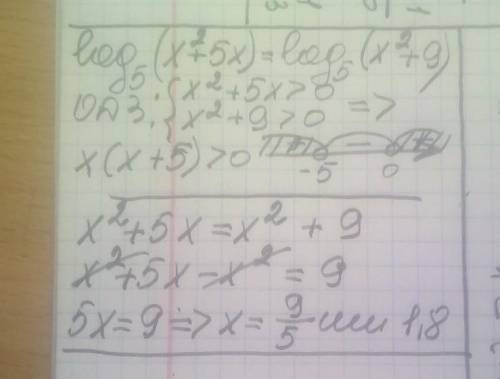 log₅(x²+5x)=log₅(x²+9)
ОДЗ: { x²+5x>0
x²+9>0 =>
x(x+5)>0 + − + -5 0
x²+5x=x² + 9
x²+5x-x² = 9
5x=9 => x= 9/5 или 1,8